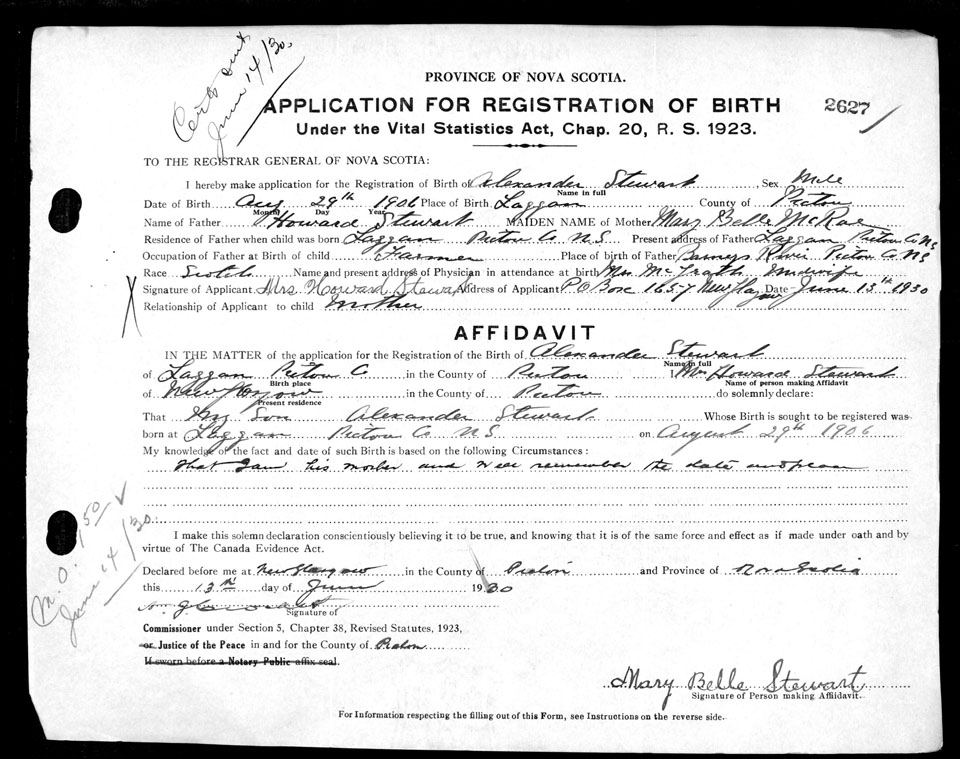 Cert sent
June 14/30.
PROVINCE OF NOVA SCOTIA.
APPLICATION FOR REGISTRATION OF BIRTH
2627
Under the Vital Statistics Act, Chap. 20, R. S. 1923.
TO THE REGISTRAR GENERAL OF NOVA SCOTIA:
I hereby make application for the Registration of Birth of Alexander Stewart Sex Male
Name in full
Date of Birth Aug 29th 1906 Place of Birth Laggan County of Pictou
Month Day Year
Name of Father Howard Stewart MAIDEN NAME of Mother Mary Belle McRae
Residence of Father when child was born Laggan Pictou Co N.S Present address of Father Laggan Pictou Co NS
Occupation of Father at Birth of child Farmer Place of birth of Father Barneys River Pictou Co NS
Race Scotch Name and present address of Physician in attendance at birth Mrs McGrath Midwife
Signature of Applicant Mrs Howard Stewart Address of Applicant P O Box 1657 New Glasgow Date June 13th 1930
X
Relationship of Applicant to child Mother
AFFIDAVIT
IN THE MATTER of the application for the Registration of the Birth of Alexander Stewart
Name in full
of Laggan Pictou Co in the County of Pictou I Mrs Howard Stewart
Birth place Name of person making Affidavit
of New Glasgow in the County of Pictou do solemnly declare:
Present residence
That My Son Alexander Stewart Whose Birth is sought to be registered was
born at Laggan Pictou Co N.S on August 29th 1906
My knowledge of the fact and date of such Birth is based on the following Circumstances:
that I am his mother and well remember the date and place
I make this solemn declaration conscientiously believing it to be true, and knowing that it is of the same force and effect as if made under oath and by
virtue of The Canada Evidence Act.
M.O. 1.50 ✓
June 14/30.
Declared before me at New Glasgow in the County of Pictou and Province of Nova Scotia
this 13th day of June 1930
Signature of
Commissioner under Section 5, Chapter 38, Revised Statutes, 1923,
or Justice of the Peace in and for the County of Pictou
If sworn before a Notary Public affix seal.
Mary Belle Stewart
Signature of Person making Affidavit.
For Information respecting the filling out of this Form, see Instructions on the reverse side.